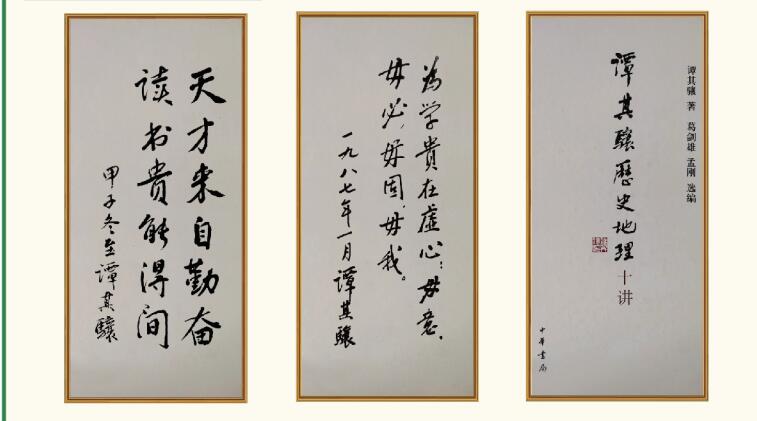 天才来自勤奋
读书貴能得间
甲子冬至譚其驤
為学貴在虚心：毋意、
毋必、毋固、毋我。
一九八七年一月 譚其驤
谭其骧 著 葛剑雄 孟刚 选编
譚其驤歷史地理十讲
中華書局